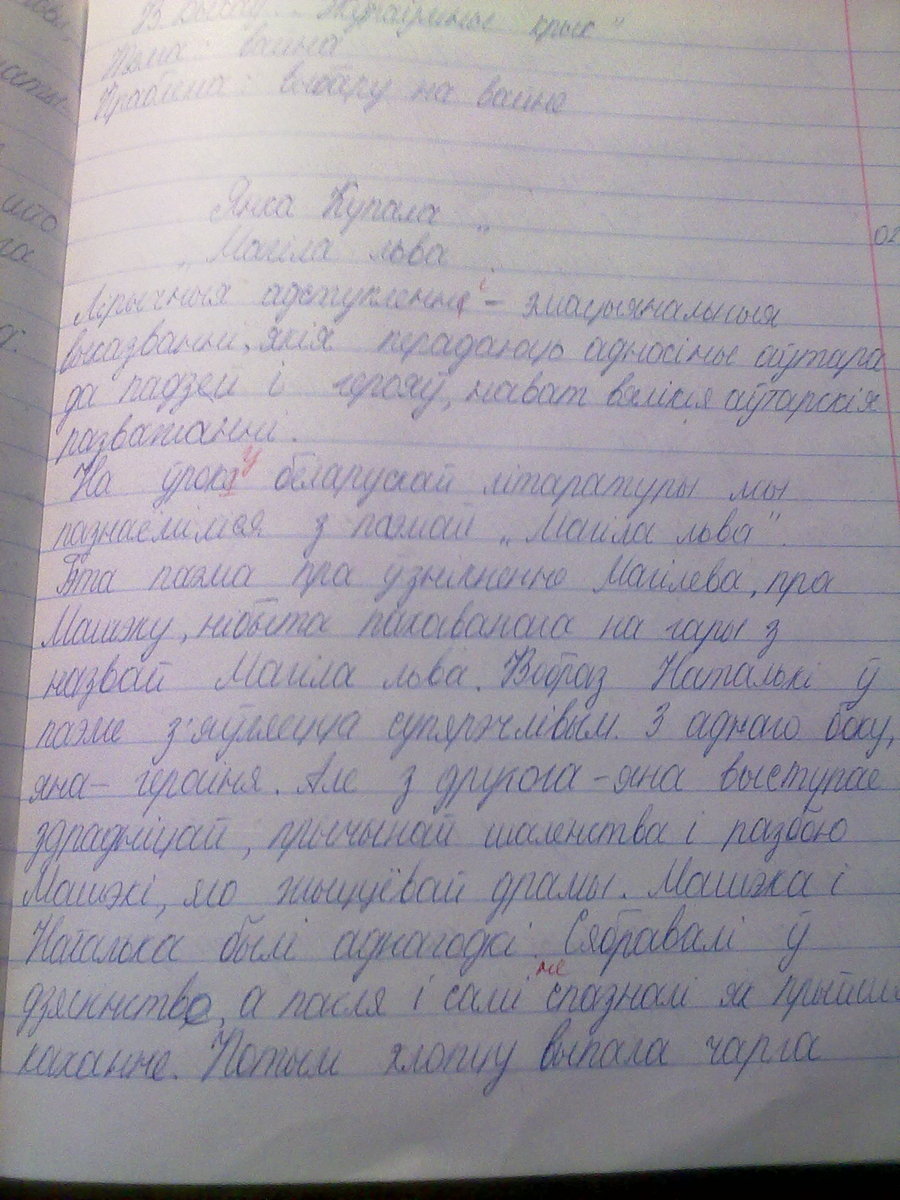 В. Быкаў. „Жураўліны крык"
Тэма: вайна
Праблема: выбару на вайне
Янка Купала
„Магіла льва"
Лірычныя адступленні – эмацыянальныя
выказванні, якія перадаюць адносіны аўтара
да падзей і герояў, нават вялікія аўтарскія
разважанні.
На ўроку беларускай літаратуры мы
пазнаёміліся з паэмай „Магіла льва".
Гэта паэма пра ўзнікненне Магілева, пра
Машэку, нібыта пахаванага на гары з
назвай Магіла льва. Вобраз Наталькі ў
паэме з'яўляецца супярэчлівым. З аднаго боку,
яна – гераіня. Але з другога – яна выступае
здрадніцай, прычынай шаленства і разбою
Машэкі, яго жыццёвай драмы. Машэка і
Наталька былі аднагодкі. Сябравалі ў
дзяцінстве, а пасля і самі не спазналі як прыйшло
каханне. Потым хлопцу выпала чарга